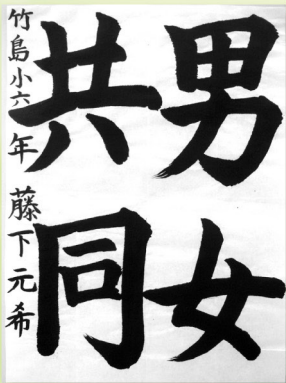 男女
共同
竹島小六年 藤下元希